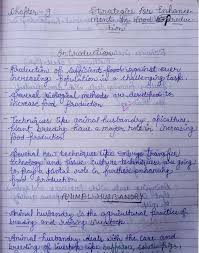 Chapter-9 Strategies for Enhance-
ment in Food Produc-
tion
Introduction
Production of sufficient food against ever
increasing population is a challenging task.
Several biological methods are
increase food production.
Techniques like animal husbandry, apiculture,
plant breeding have a major role in increasing
food production
Several new techniques like embryo transfer
technology and tissue culture techniques are going
to play pivotal role in further enhancing
food production.
ANIMAL HUSBANDRY
Animal husbandry is the agricultural practice of
breeding and raising livestock
Animal husbandry deals with the care and
breeding of livestock like buffaloes,